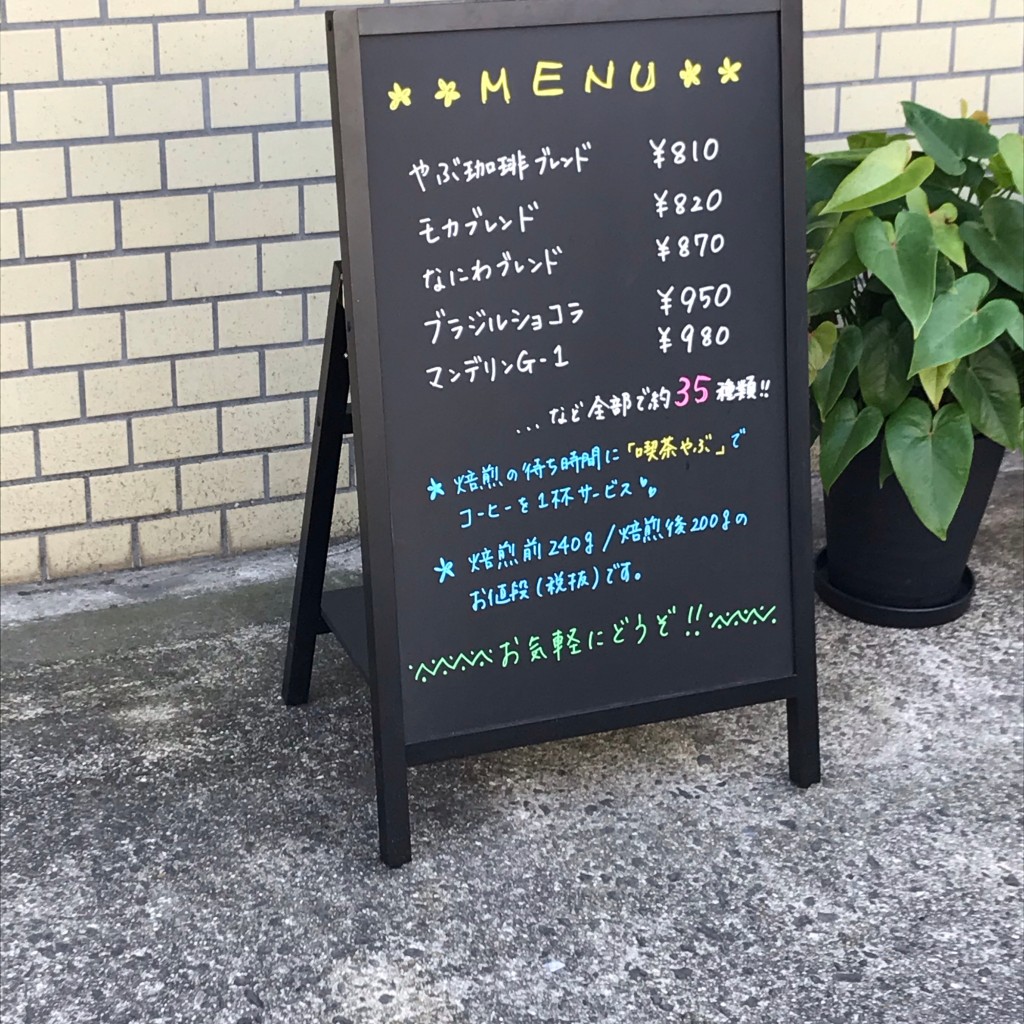 MENU
やぶ珈琲ブレンド ¥810
モカブレンド ¥820
なにわブレンド ¥870
ブラジルショコラ ¥950
マンデリンG-1 ¥980
...など全部で約35種類!!
* 焙煎の待ち時間に「喫茶やぶ」で
コーヒーを1杯サービス
* 焙煎前240g/焙煎後200gの
お値段(税抜)です。
お気軽にどうぞ!!